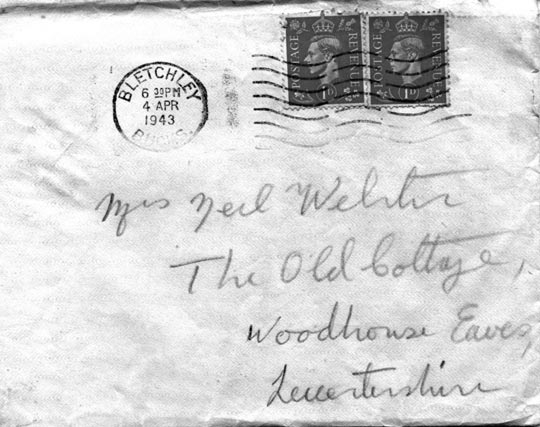 BLETCHLEY
6 30PM
4 APR
1943
BUCKS.
POSTAGE REVENUE
1D
POSTAGE REVENUE
1D
Mrs Neil Webster
The Old Cottage,
Woodhouse Eaves,
Leicestershire